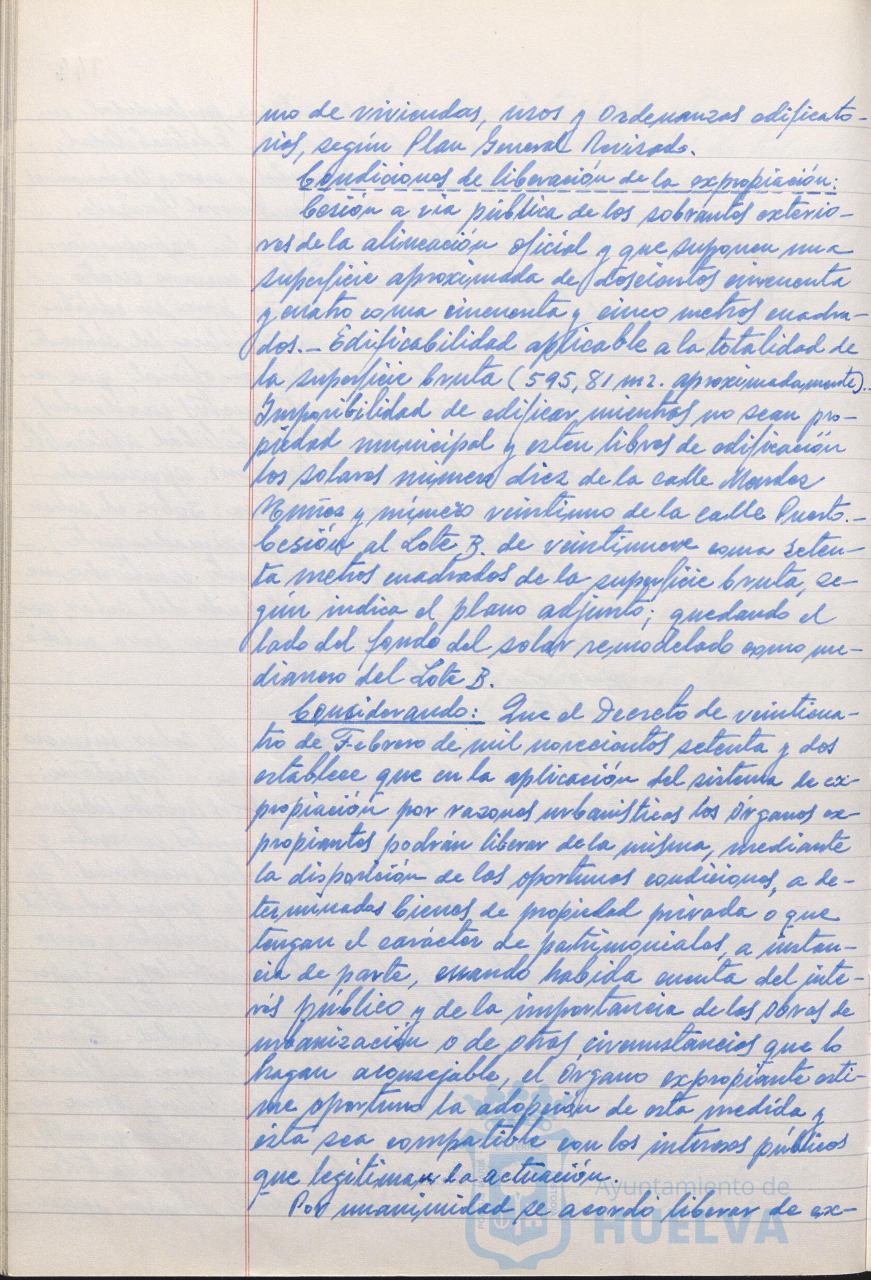 mo de viviendas, usos y Ordenanzas edificato-
rias, según Plan General Revisado.
Condiciones de liberación de la expropiación:
Cesión a via pública de los sobrantes exterio-
res de la alineación oficial y que suponen una
superficie aproximada de doscientos cincuenta
y cuatro coma cincuenta y cinco metros cuadra-
dos.- Edificabilidad aplicable a la totalidad de
la superficie bruta (595,81 m2. aproximadamente)..
Imposibilidad de edificar mientras no sean pro-
piedad municipal y esten libres de edificación
los solares número diez de la calle Mendez
Nuñez y número veintiuno de la calle Puerto.-
Cesión al Lote B. de veintinueve coma seten-
ta metros cuadrados de la superficie bruta, se-
gún indica el plano adjunto; quedando el
lado del fondo del solar remodelado como me-
dianero del Lote B.
Considerando: Que el Decreto de veinticua-
tro de Febrero de mil novecientos setenta y dos
establece que en la aplicación del sistema de ex-
propiación por razones urbanísticas los Órganos ex-
propiantes podrán liberar de la misma, mediante
la disposición de las oportunas condiciones, a de-
terminados bienes de propiedad privada o que
tengan el carácter de patrimoniales, a instan-
cia de parte, cuando habida cuenta del inte-
rés público y de la importancia de las obras de
urbanización o de otras circunstancias que lo
hagan aconsejable, el Órgano expropiante esti-
me oportuno la adopción de esta medida y
ésta sea compatible con los intereses públicos
que legitiman la actuación.
Por unanimidad se acordó liberar de ex-
Ayuntamiento de
HUELVA